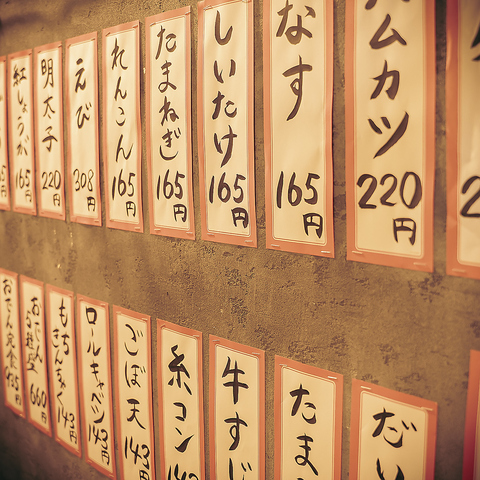 ハムカツ 220円
なす 165円
しいたけ 165円
たまねぎ 165円
れんこん 165円
えび 308円
明太子 220円
紅しょうが 165円
だい
たま
牛すじ
糸コン 143
ごぼ天 143円
ロルキャベツ 143円
もちきんちゃく 143円
おでん 660円
おでん定食 935円